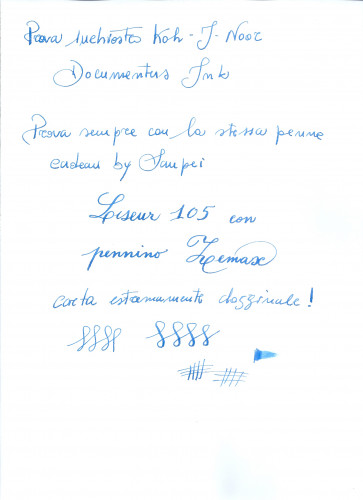 Prova inchiostro Koh-I-Noor
Documentus Ink
Prova sempre con la stessa penna
cadeau by Sanpei
Liseur 105 con
pennino Zemax
carta estremamente dozzinale!